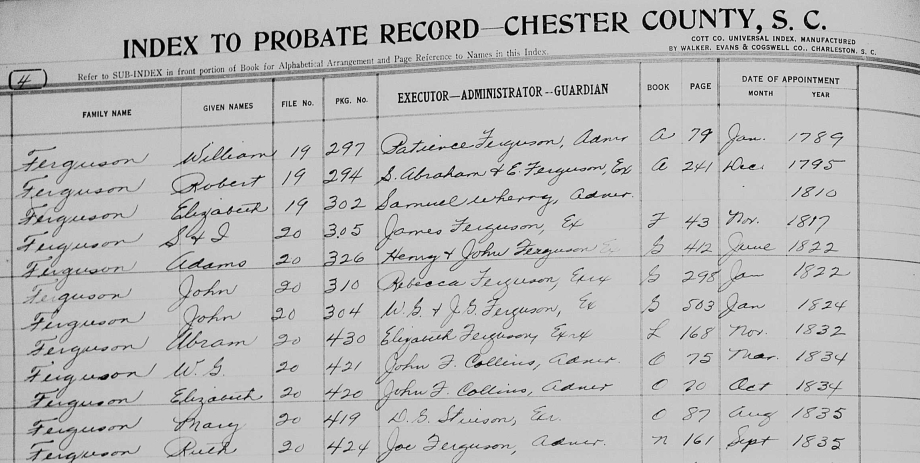 INDEX TO PROBATE RECORD—CHESTER COUNTY, S. C.
COTT CO. UNIVERSAL INDEX, MANUFACTURED
BY WALKER, EVANS & COGSWELL CO., CHARLESTON, S. C.
4 Refer to SUB-INDEX in front portion of Book for Alphabetical Arrangement and Page Reference to Names in this Index.
FAMILY NAME GIVEN NAMES FILE No. PKG. No. EXECUTOR—ADMINISTRATOR--GUARDIAN BOOK PAGE DATE OF APPOINTMENT
MONTH YEAR
Ferguson William 19 297 Patience Ferguson, Admr A 79 Jan. 1789
Ferguson Robert 19 294 S. Abraham & E. Ferguson, Ex A 241 Dec 1795
Ferguson Elizabeth 19 302 Samuel Wherry, Admr. 1810
Ferguson S & I 20 305 James Ferguson, Ex F 43 Nov. 1817
Ferguson Adams 20 326 Henry & John Ferguson Ex G 412 June 1822
Ferguson John 20 310 Rebecca Ferguson, Exrx G 298 Jan 1822
Ferguson John 20 304 W. G. & J. G. Ferguson, Ex G 503 Jan 1824
Ferguson Abram 20 430 Elizabeth Ferguson, Exrx L 168 Nov. 1832
Ferguson W. G. 20 421 John F. Collins, Admr. O 75 Mar. 1834
Ferguson Elizabeth 20 420 John F. Collins, Admr O 20 Oct 1834
Ferguson Mary 20 419 D. G. Stinson, Ex. O 87 Aug 1835
Ferguson Ruth 20 424 Joe Ferguson, Admr. N 161 Sept 1835